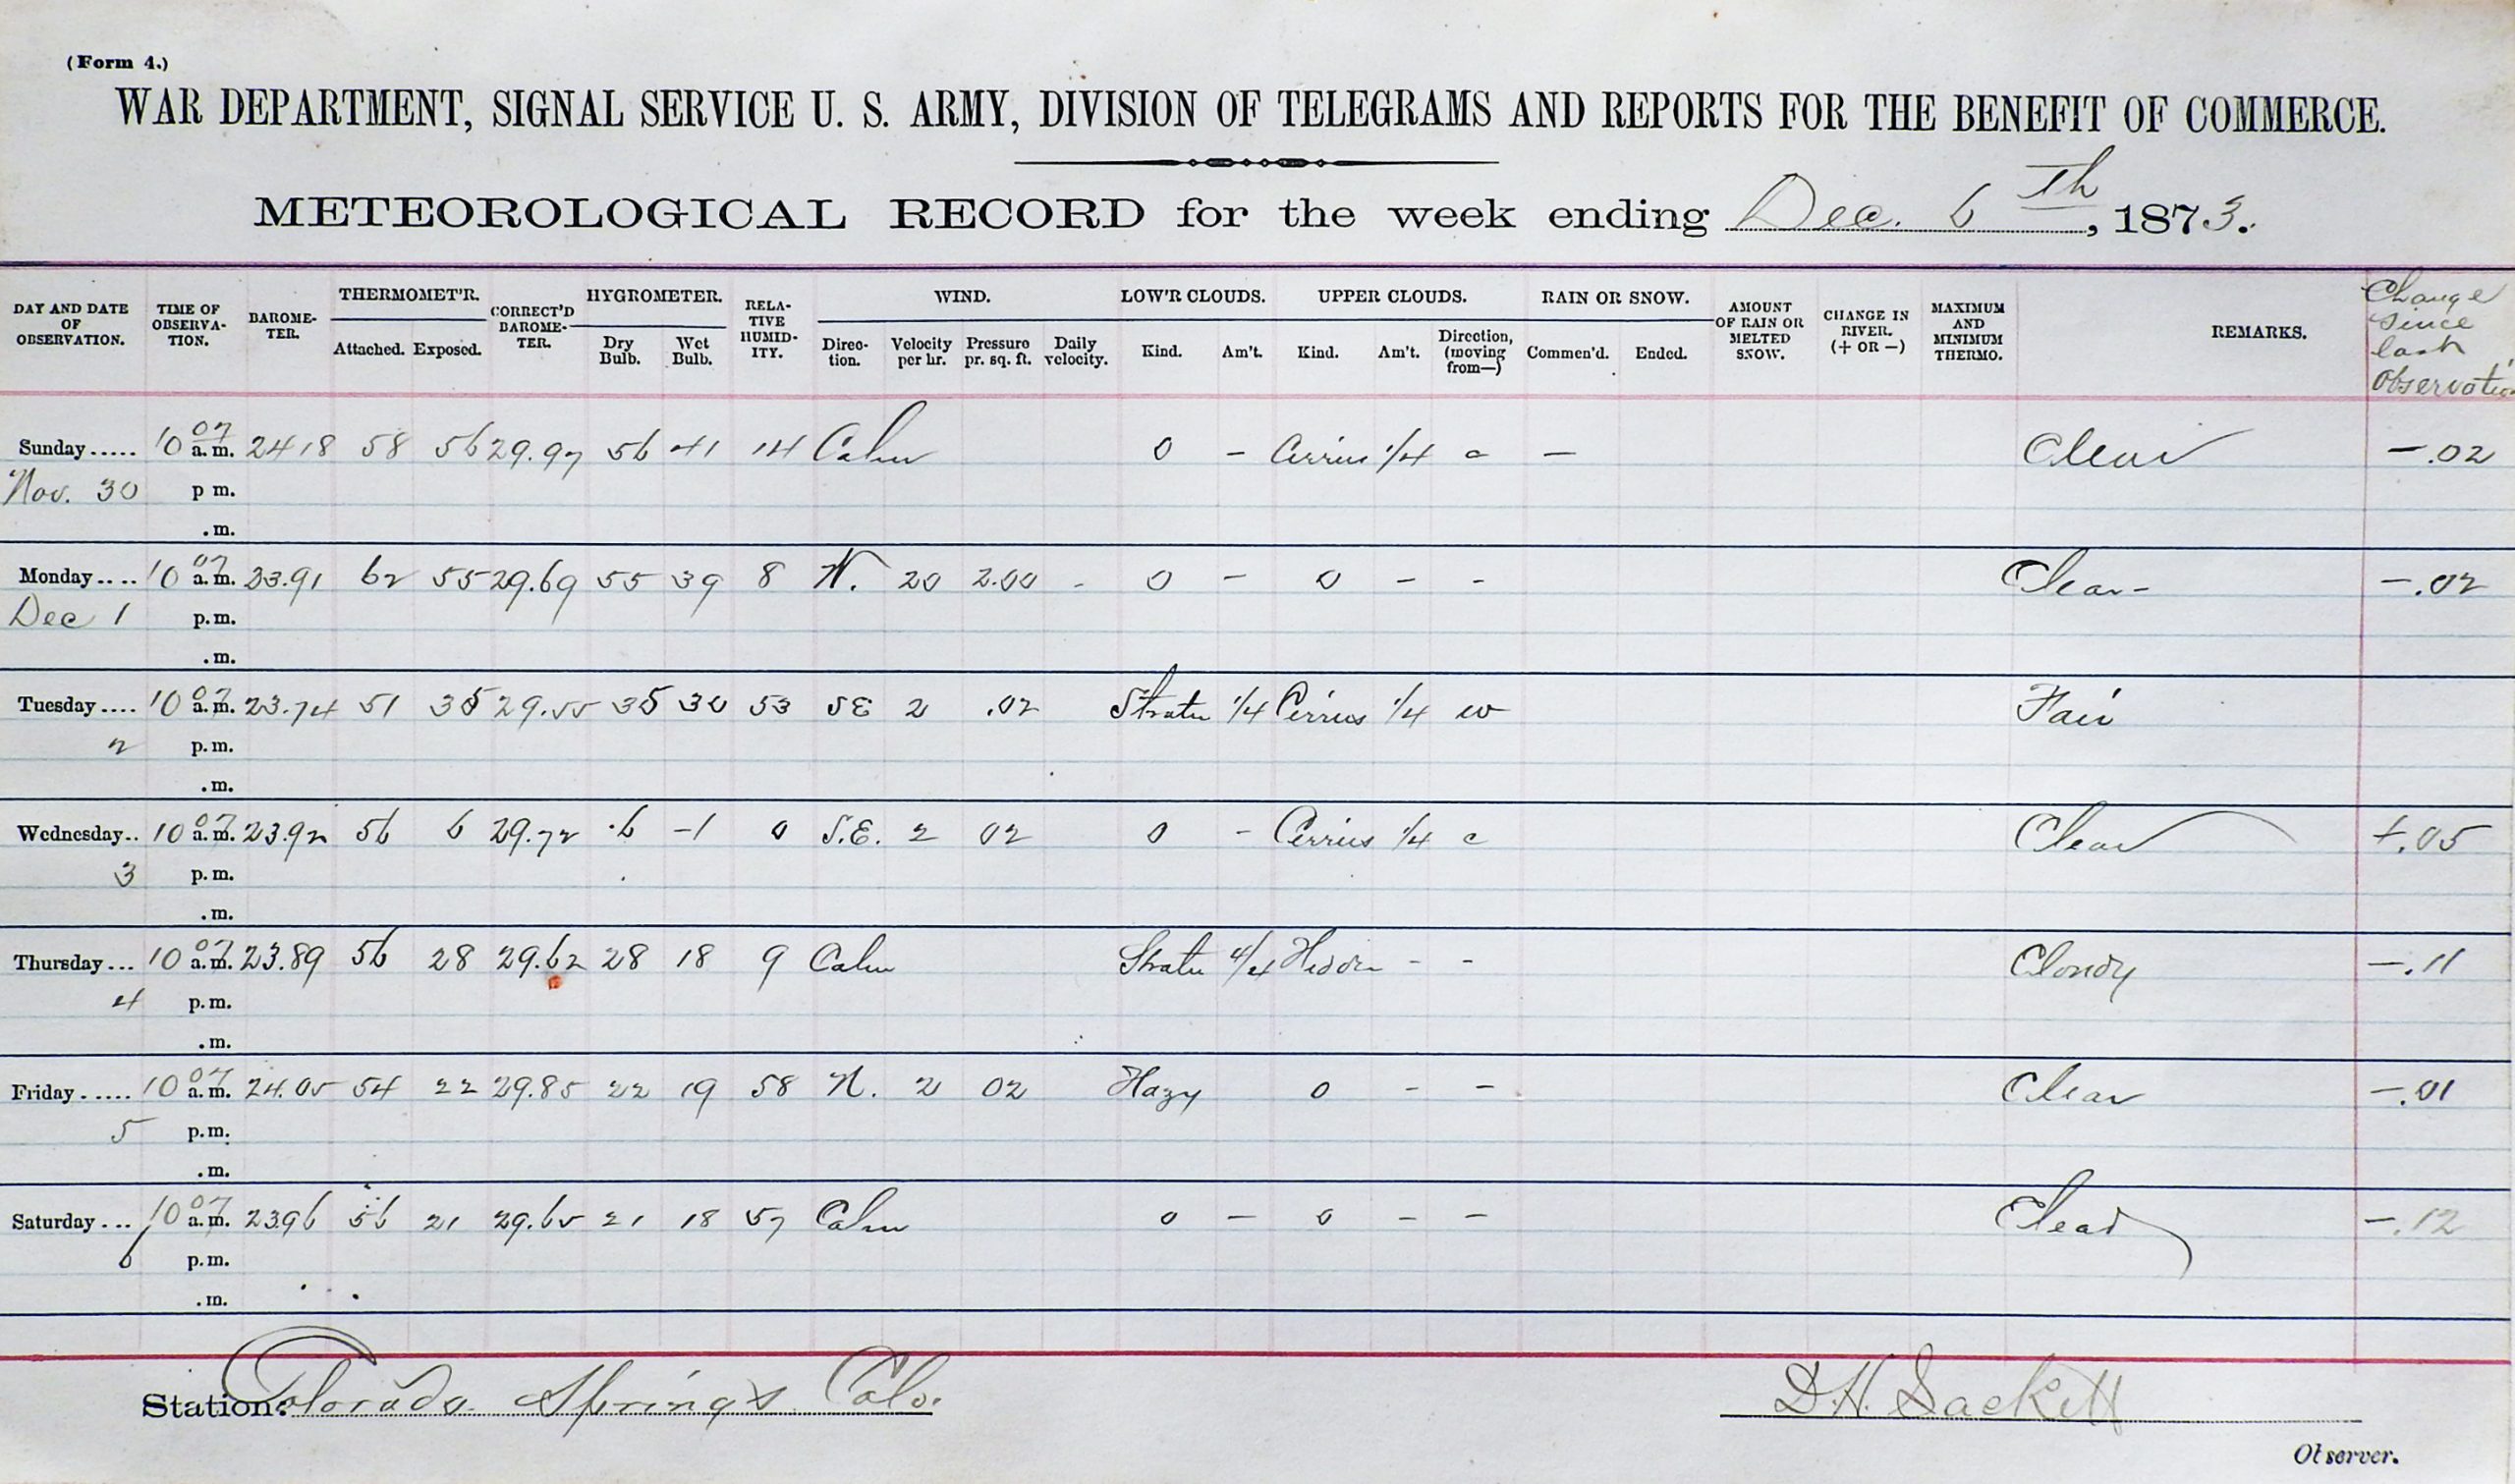 (Form 4.)
WAR DEPARTMENT, SIGNAL SERVICE U. S. ARMY, DIVISION OF TELEGRAMS AND REPORTS FOR THE BENEFIT OF COMMERCE.
METEOROLOGICAL RECORD for the week ending Dec. 6th, 1873.
DAY AND DATE OF OBSERVATION. TIME OF OBSERVA-TION. BAROME-TER. THERMOMET'R. Attached. Exposed. CORRECT'D BAROME-TER. HYGROMETER. Dry Bulb. Wet Bulb. RELA-TIVE HUMID-ITY. WIND. Direc-tion. Velocity per hr. Pressure pr. sq. ft. Daily velocity. LOW'R CLOUDS. Kind. Am't. UPPER CLOUDS. Kind. Am't. Direction, (moving from—) RAIN OR SNOW. Commen'd. Ended. AMOUNT OF RAIN OR MELTED SNOW. CHANGE IN RIVER. (+ OR —) MAXIMUM AND MINIMUM THERMO. REMARKS. Change since last Observation
Sunday..... 10 07 a.m. 2418 58 56 29.97 56 41 14 Calm 0 - Cirrus 1/4 c — Clear -.02
Nov. 30 p m.
.m.
Monday.... 10 07 a.m. 23.91 62 55 29.69 55 39 8 N. 20 2.00 - 0 - 0 - - Clear -.02
Dec 1 p.m.
.m.
Tuesday.... 10 07 a.m. 23.74 51 35 29.55 35 30 53 SE 2 .02 Stratu 1/4 Cirrius 1/4 w Fair
2 p.m.
.m.
Wednesday.. 10 07 a.m. 23.92 56 6 29.72 .6 -1 0 S.E. 2 02 0 - Cirrius 1/4 c Clear +.05
3 p.m.
.m.
Thursday... 10 07 a.m. 23.89 56 28 29.62 28 18 9 Calm Stratu 4/4 Hidden - - Cloudy -.11
4 p.m.
.m.
Friday..... 10 07 a.m. 24.05 54 22 29.85 22 19 58 N. 2 02 Hazy 0 - - Clear -.01
5 p.m.
.m.
Saturday... 10 07 a.m. 2396 56 21 29.65 21 18 57 Calm 0 - 0 - - Clear -.12
6 p.m.
.m.
Station: Colorado Springs Colo. D.H. Sackett
Observer.